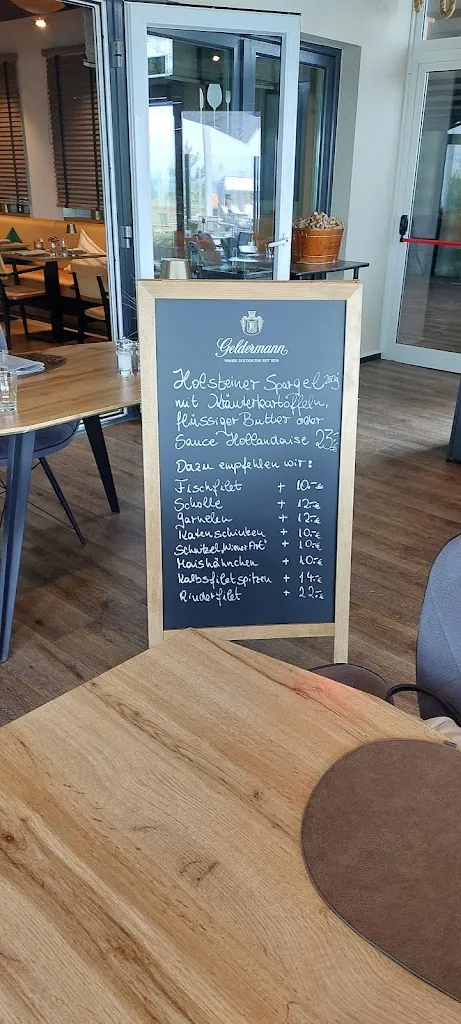 Geldermann
Holsteiner Spargel
mit Kräuterkartoffeln,
flüssiger Butter oder
Sauce Hollandaise 23,-€
Dazu empfehlen wir:
Fischfilet + 10,-€
Scholle + 12,-€
Garnelen + 12,-€
Katenschinken + 10,-€
Schnitzel "Wiener Art" + 10,-€
Maishähnchen + 10,-€
Kalbsfiletspitzen + 14,-€
Rinderfilet + 22,-€